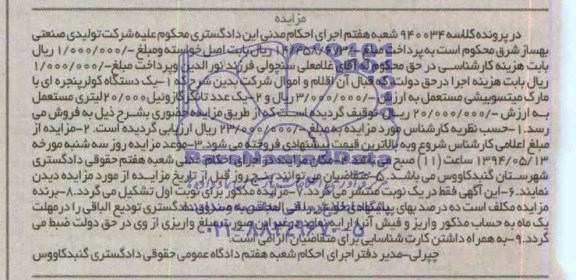 مزایده
در پرونده کلاسه ۹۴۰۰۳۴ شعبه هفتم اجرای احکام مدنی این دادگستری محکوم علیه شرکت تولیدی صنعتی
بهساز شرق محکوم است به پرداخت مبلغ ریال بابت اصل خواسته ومبلغ -/۱/۰۰۰/۰۰۰ ریال
بابت هزینه کارشناسی در حق محکوم له آقای غلامعلی سنچولی فرزند نور الدین وپرداخت مبلغ -/۱/۰۰۰/۰۰۰
ریال بابت هزینه اجرا درحق دولت که قبال آن اقلام و اموال شرکت بدین شرح که ۱-یک دستگاه کولر پنجره ای با
مارک میتسوبیشی مستعمل به ارزش -/۳/۰۰۰/۰۰۰ ریال و ۲-یک عدد تانکر گازوئیل ۲۰/۰۰۰ لیتری مستعمل
به ارزش -/۲۰/۰۰۰/۰۰۰ ریال توقیف گردیده است که از طریق مزایده حضوری بشرح ذیل به فروش می
رسد.۱-حسب نظریه کارشناس مورد مزایده به مبلغ -/۲۳/۰۰۰/۰۰۰ ریال ارزیابی گردیده است.۲-مزایده از
مبلغ اعلامی کارشناس شروع وبه بالاترین قیمت پیشنهادی فروخته می شود.۳-موعد مزایده روز سه شنبه مورخه
۱۳۹۴/۰۵/۱۳ ساعت (۱۱) صبح می باشد.۴-مکان مزایده در اجرای احکام مدنی شعبه هفتم حقوقی دادگستری
شهرستان گنبدکاووس می باشد.۵-متقاضیان می توانند پنج روز قبل از تاریخ مزایده از مورد مزایده دیدن
نمایند.۶-این آگهی فقط در یک نوبت منتشر می گردد.۷-مزایده مذکور برای نوبت اول تشکیل می گردد.۸-برنده
مزایده مکلف است ده درصد بهای پیشنهادی را فی المجلس به صندوق دادگستری تودیع الباقی را درمهلت
یک ماه به حساب مذکور واریز و فیش آنرا ارایه نماید درغیر این صورت مبلغ واریزی از وی در حق دولت ضبط می
گردد.۹-به همراه داشتن کارت شناسایی برای متقاضیان الزامی است.
چپرلی-مدیر دفتر اجرای احکام شعبه هفتم دادگاه عمومی حقوقی دادگستری گنبدکاووس